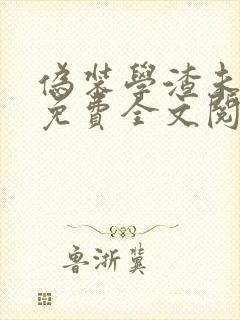 偽裝學渣未
免費全文閱
魯浙冀